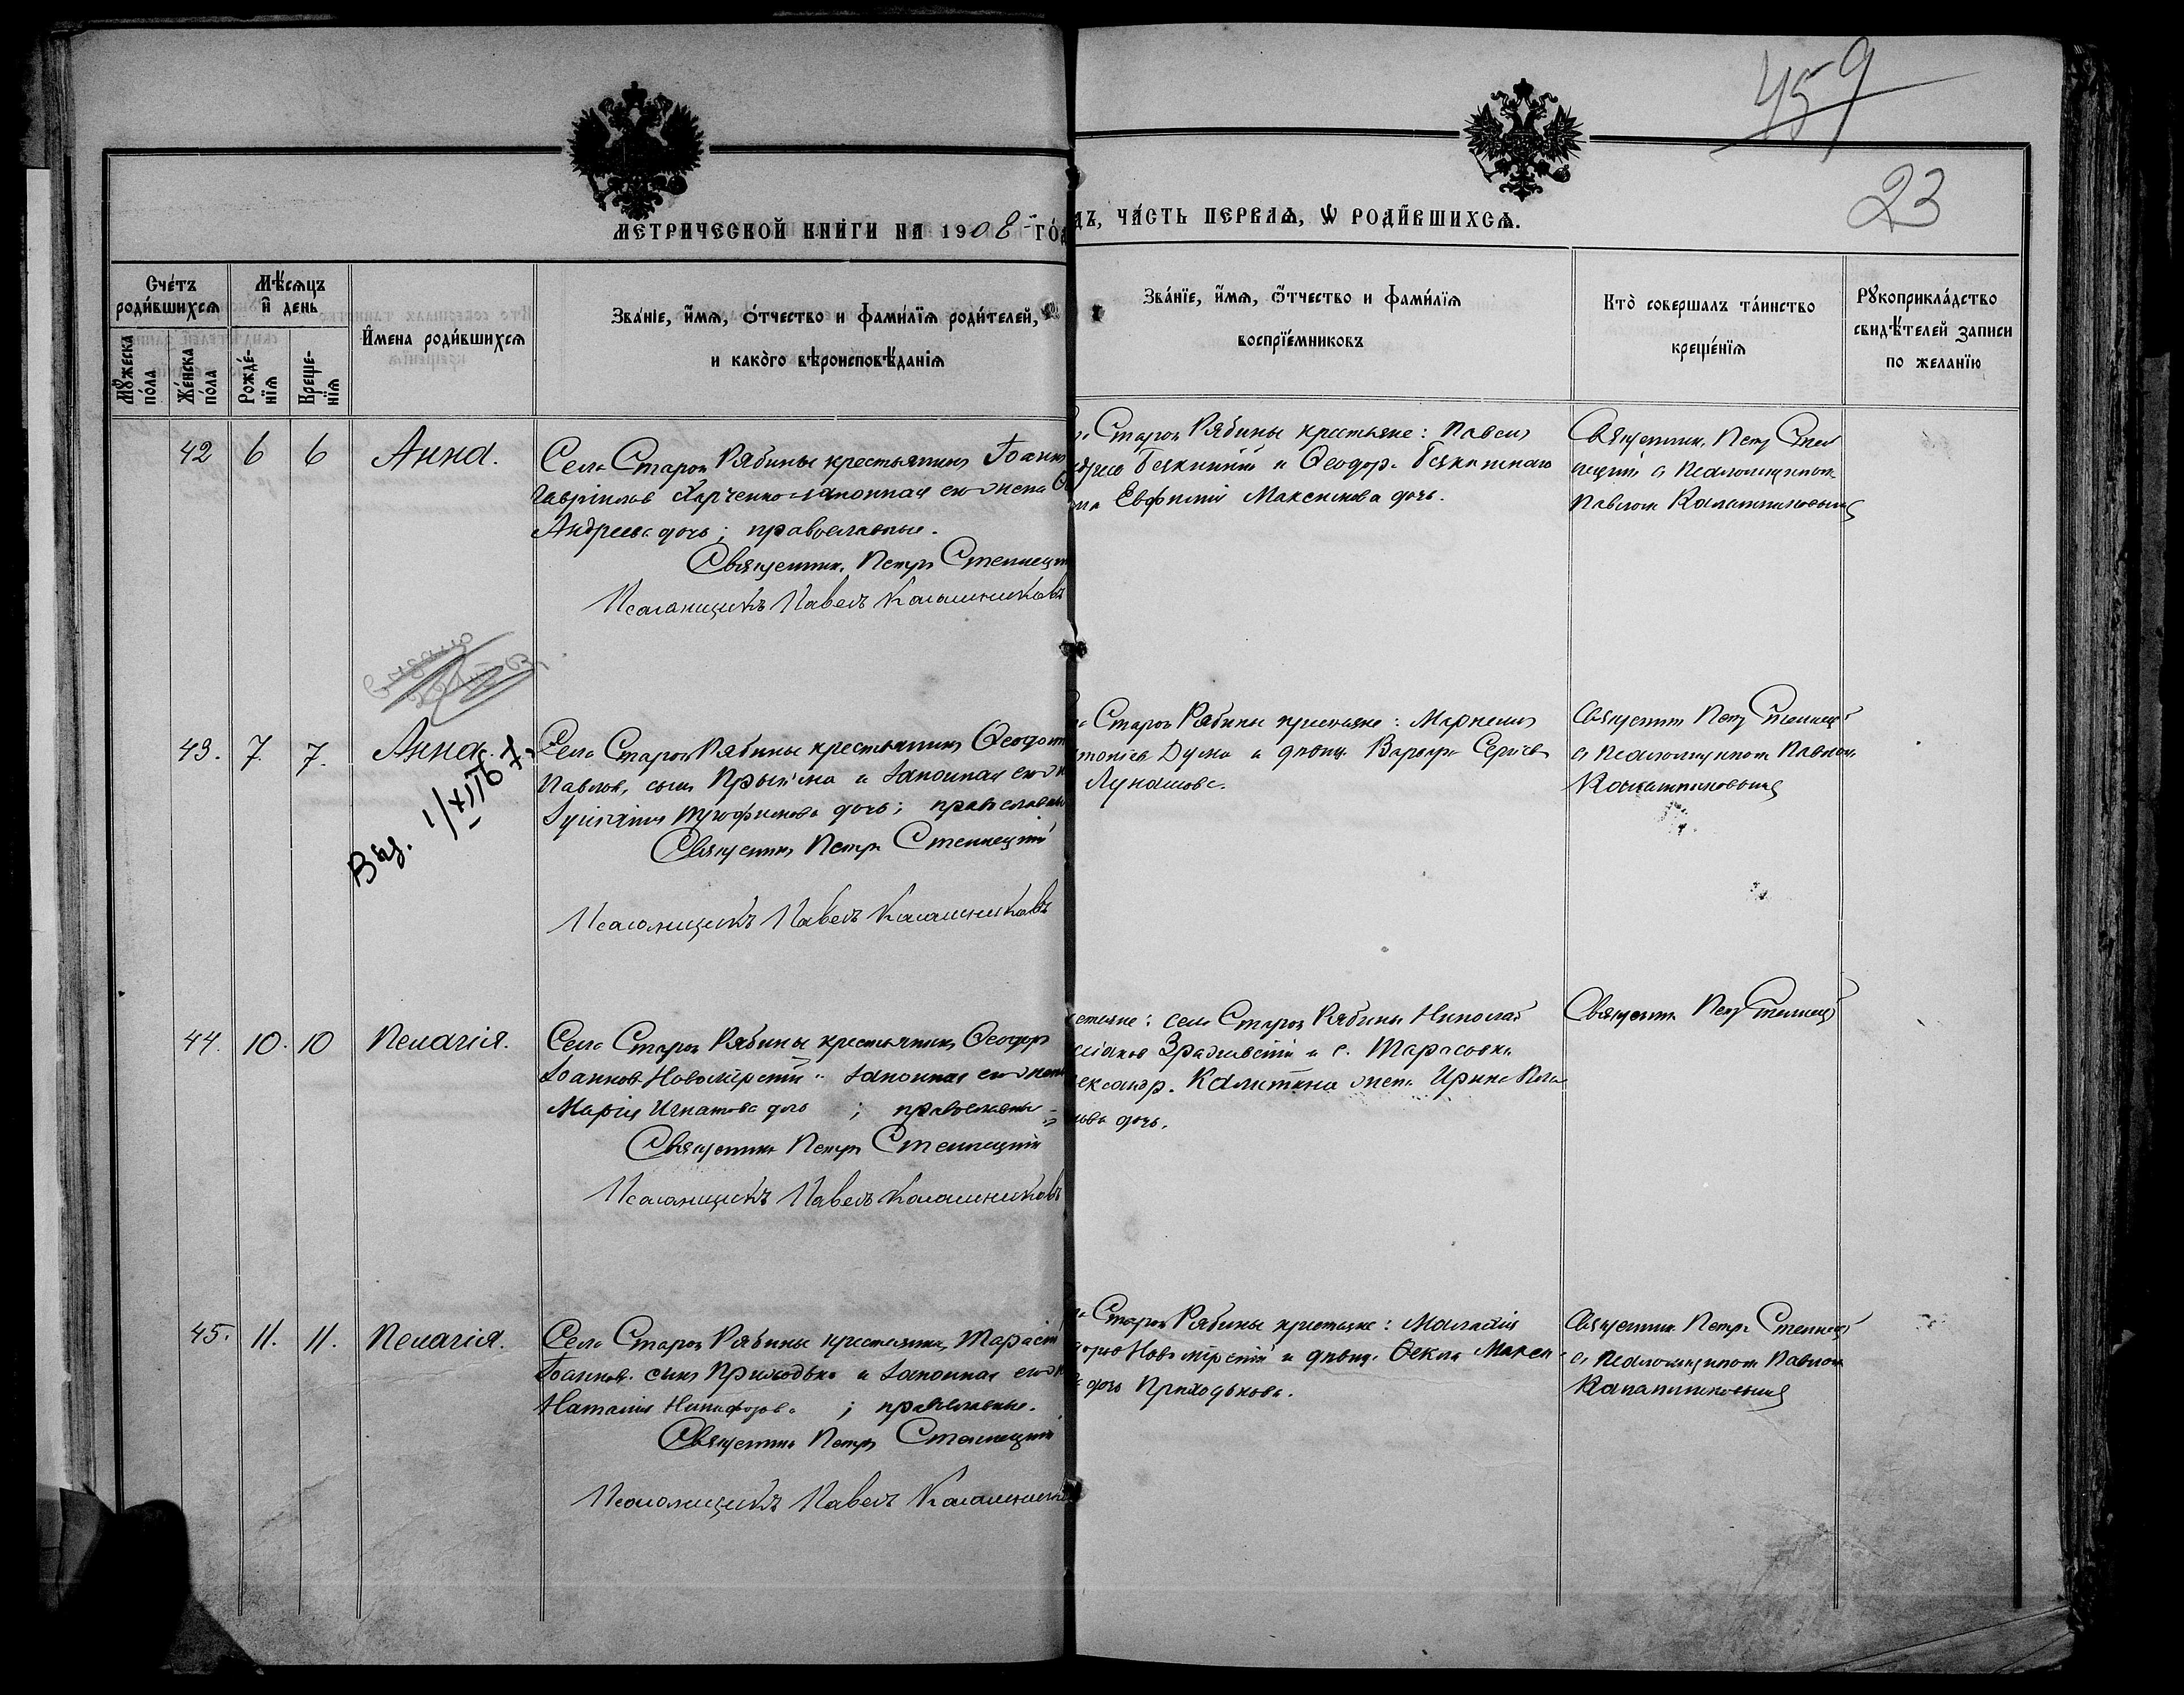 459
23
МЕТРИЧЕСКОЙ КНИГИ НА 1908 ГО
ДЪ, ЧАСТЬ ПЕРВАЯ, Ѡ РОДИВШИХСЯ.
Счетъ родившихся
Мꙋжеска пола
Женска пола
Мѣсяцъ и день
Рожде-нїя
Креще-нїя
Имена родившихся
Званїе, имя, отчество и фамилїя родителей,
и какого вѣроисповѣданїя
Званїе, имя, ѿтчество и фамилїя
воспрїемниковъ
Кто совершалъ таинство
крещенїя
Рꙋкоприкладство
свидѣтелей записи
по желанїю
42 6 6 Анна.
Села Старой Рябины крестьянинъ Іоаннъ
Гавріиловъ Харченко законная его жена
Андреева дочь; православные.
Священникъ Петръ Стеллецкій
Псаломщикъ Павелъ Калашниковъ
Старой Рябины крестьяне: Павелъ
и Ѳеодора
Евфимія Максимова дочь.
Священникъ Петръ Стел
лецкій съ псаломщикомъ
Павломъ Калашниковымъ
43. 7. 7. Анна.
Выд. 1/XII 67
Села Старой Рябины крестьянинъ Ѳеодотъ
Павловъ сынъ и законная его
Іуліанія Трофимова дочь; православные
Священникъ Петръ Стеллецкій
Псаломщикъ Павелъ Калашниковъ
Старой Рябины крестьяне:
Дума и дѣвица Варвара Сергіева
Лукашова.
Священникъ Петръ Стеллецкій
съ псаломщикомъ Павломъ
Калашниковымъ
44. 10. 10 Пелагія.
Села Старой Рябины крестьянинъ Ѳеодоръ
Іоанновъ Новомірскій и законная его жена
Марія Игнатова дочь; православные
Священникъ Петръ Стеллецкій
Псаломщикъ Павелъ Калашниковъ
стьяне: села Старой Рябины Николай
и с. Тарасовки
ександра Калитина жена Ирина
ова дочь.
Священникъ Петръ Стеллецкій
45. 11. 11. Пелагія.
Села Старой Рябины крестьянинъ Тарасій
Іоанновъ сынъ Приходько и законная его
Наталія Никифорова; православные.
Священникъ Петръ Стеллецкій
Псаломщикъ Павелъ Калашников
Старой Рябины крестьяне:
Новомірскій и дѣвица Ѳекла Макси
дочь Приходькова.
Священникъ Петръ Стеллецкій
съ псаломщикомъ Павломъ
Калашниковымъ